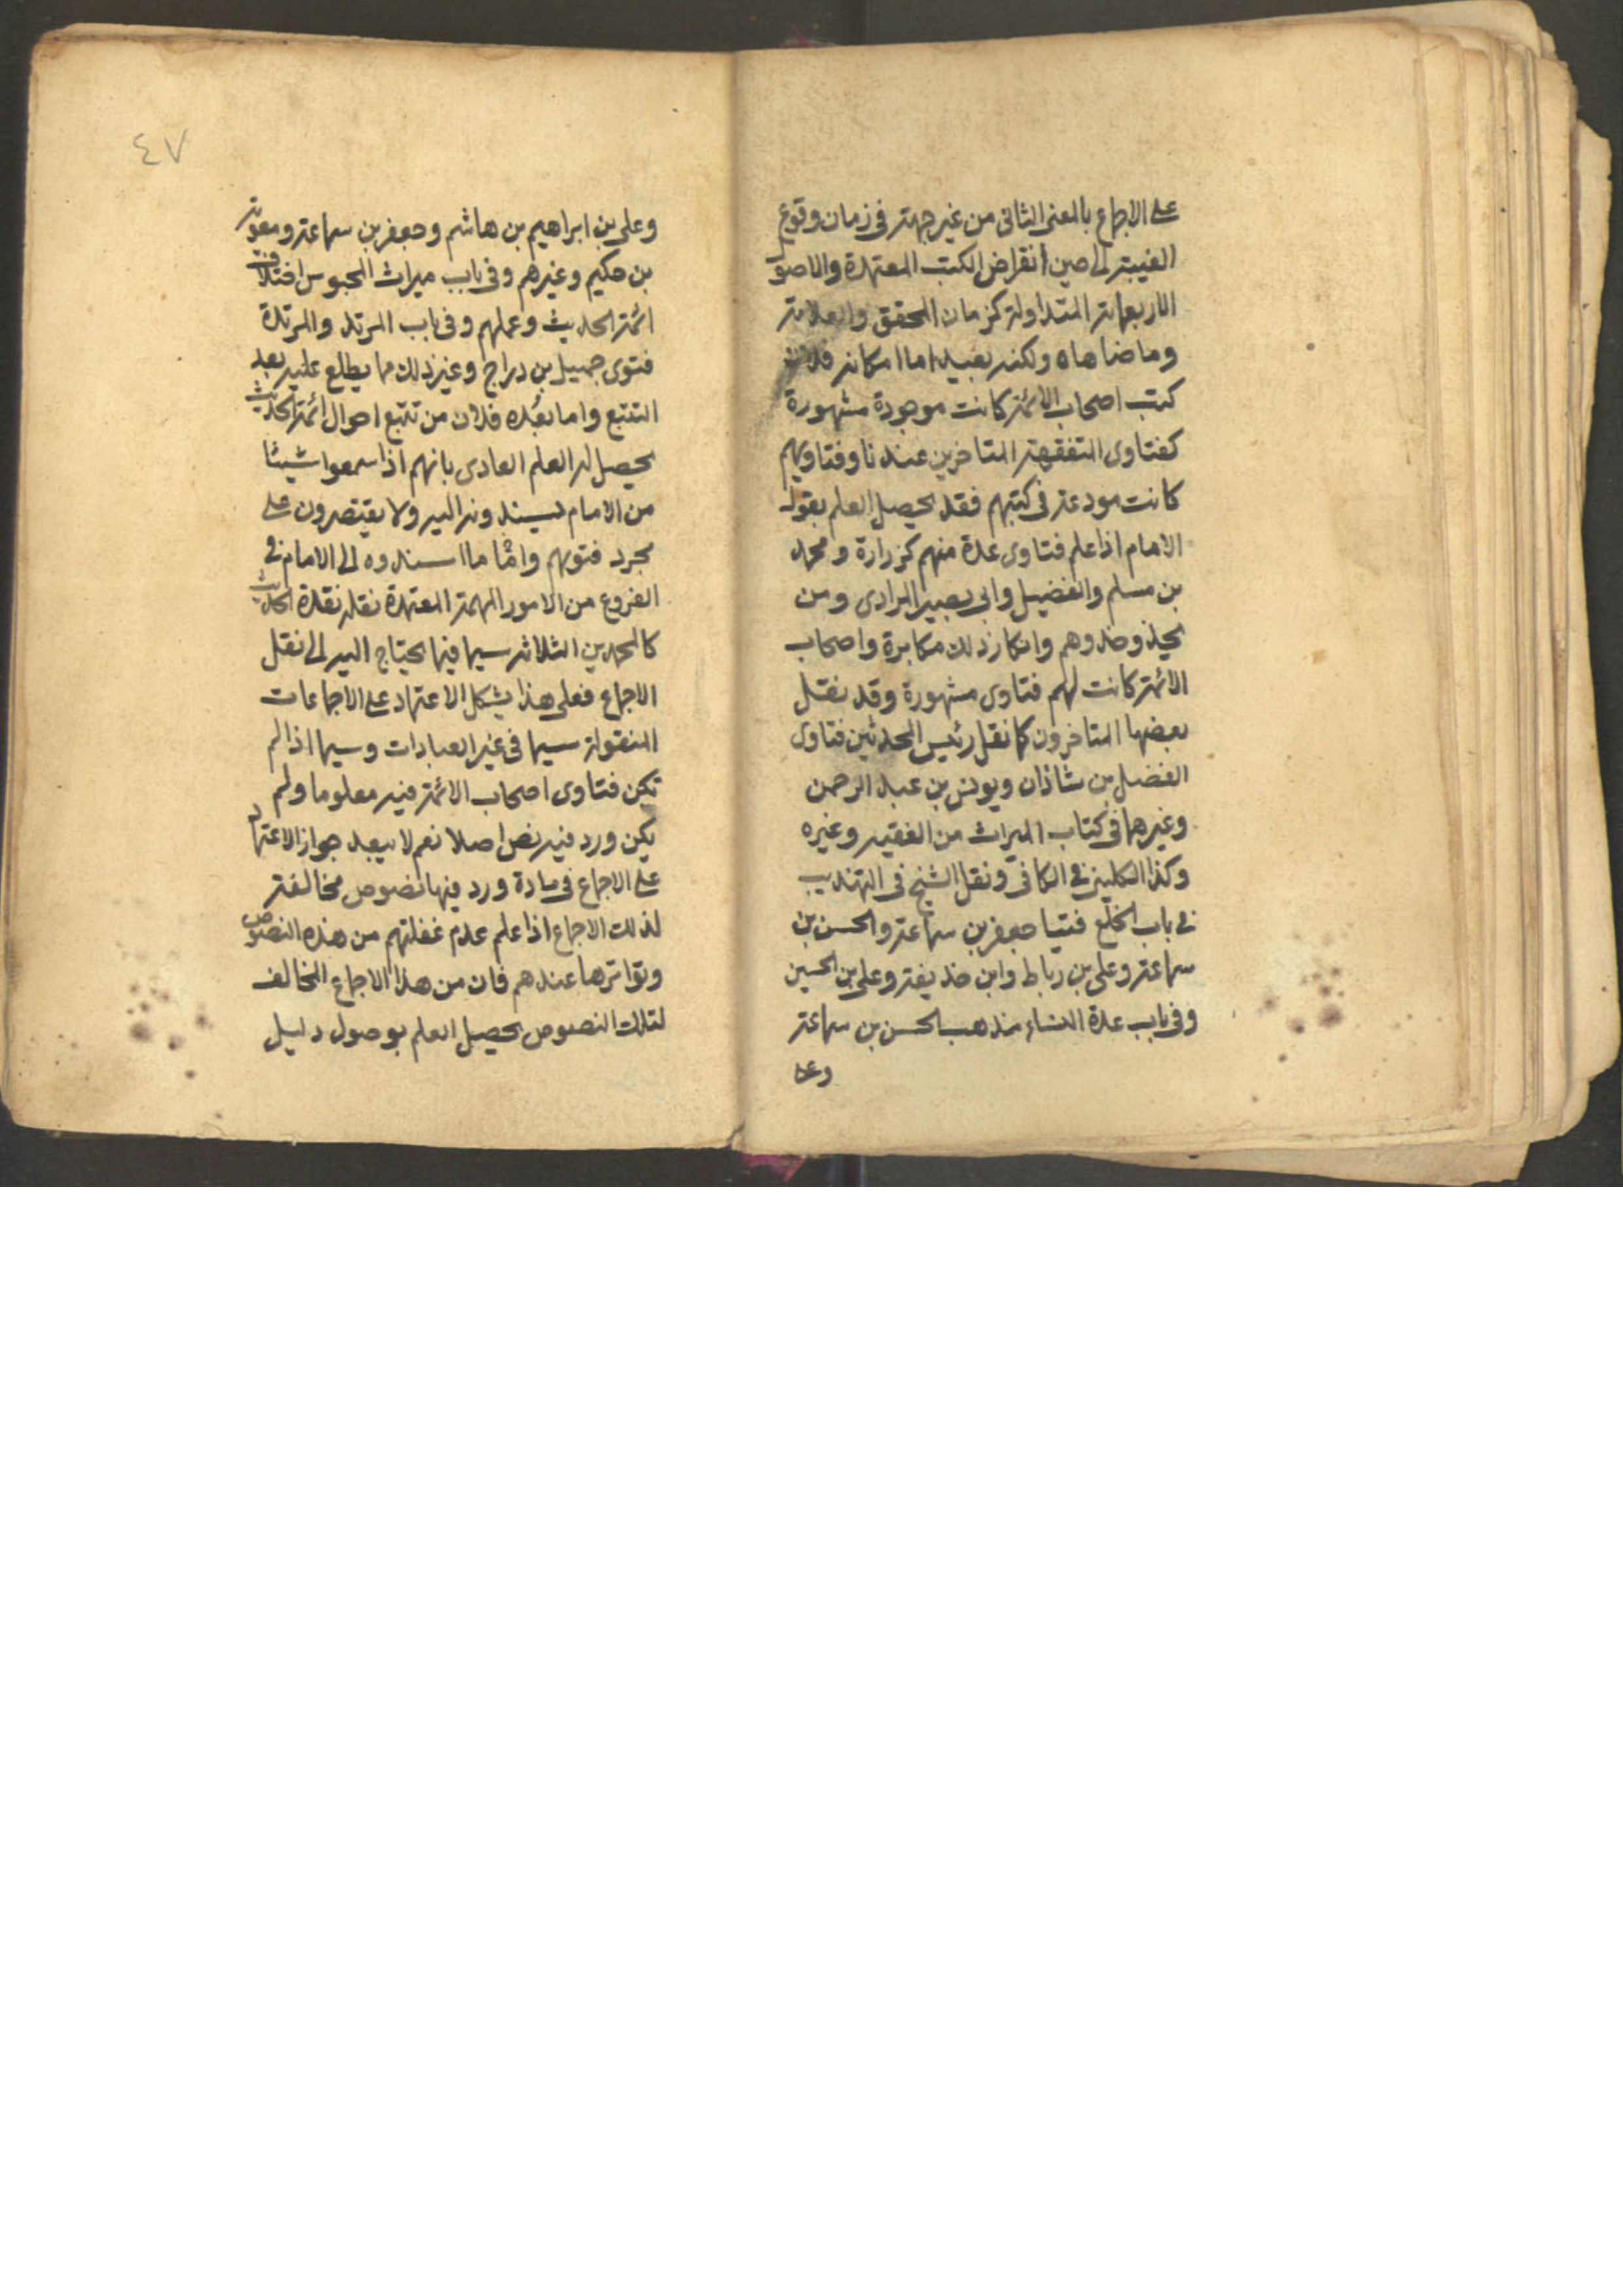 على الاجماع بالمعنى الثانى من غير جهته فى زمان وقوع
الغيبة الى حين انقراض الكتب المعتمدة والاصول
الاربعمائة المتداولة كزمان المحقق والعلامة
وما ضاهاه ولكنه بعيد اما امكانه فلان
كتب اصحاب الائمة كانت موجودة مشهورة
كفتاوى المتفقهة المتاخرين عندنا وفتاويهم
كانت مودعة فى كتبهم فقد يحصل العلم بقول
الامام اذا علم فتاوى عدة منهم كزرارة ومحمد
بن مسلم والفضيل وابى بصير المرادى ومن
يحذو حذوهم وانكار ذلك مكابرة واصحاب
الائمة كانت لهم فتاوى مشهورة وقد نقل
بعضها المتاخرون كما نقل رئيس المحدثين فتاوى
الفضل بن شاذان ويونس بن عبد الرحمن
وغيرهما فى كتاب الميراث من الفقيه وغيره
وكذا الكلينى فى الكافى ونقل الشيخ فى التهذيب
فى باب الخلع فتيا جعفر بن سماعة والحسن بن
سماعة وعلى بن رباط وابن حذيفة وعلى بن الحسين
وفى باب عدة النساء مذهب الحسن بن سماعة
وعلى
٤٧
وعلى بن ابراهيم بن هاشم وجعفر بن سماعة ومعوية
بن حكيم وغيرهم وفى باب ميراث المجوس اختلاف
ائمة الحديث وعملهم وفى باب المرتد والمرتدة
فتوى جميل بن دراج وغير ذلك مما يطلع عليه بعد
التتبع واما بعده فلان من تتبع احوال ائمة الحديث
يحصل له العلم العادى بانهم اذا سمعوا شيئا
من الامام يسندونه اليه ولا يقتصرون على
مجرد فتويهم وامّا ما اسندوه الى الامام فى
الفروع من الامور المهمة المعتمدة نقله نقدة الحديث
كالمحمدين الثلاثة سيما فيما يحتاج اليه الى نقل
الاجماع فعلى هذا يشكل الاعتماد على الاجماعات
المنقولة سيما فى غير العبادات وسيما اذا لم
تكن فتاوى اصحاب الائمة فيه معلوما ولم
يكن ورد فيه نص اصلا نعم لا يبعد جواز الاعتماد
على الاجماع فى مادة ورد فيها نصوص مخالفة
لذلك الاجماع اذا علم عدم غفلتهم من هذه النصوص
وتواترها عندهم فان من هذا الاجماع المخالف
لتلك النصوص يحصل العلم بوصول دليل